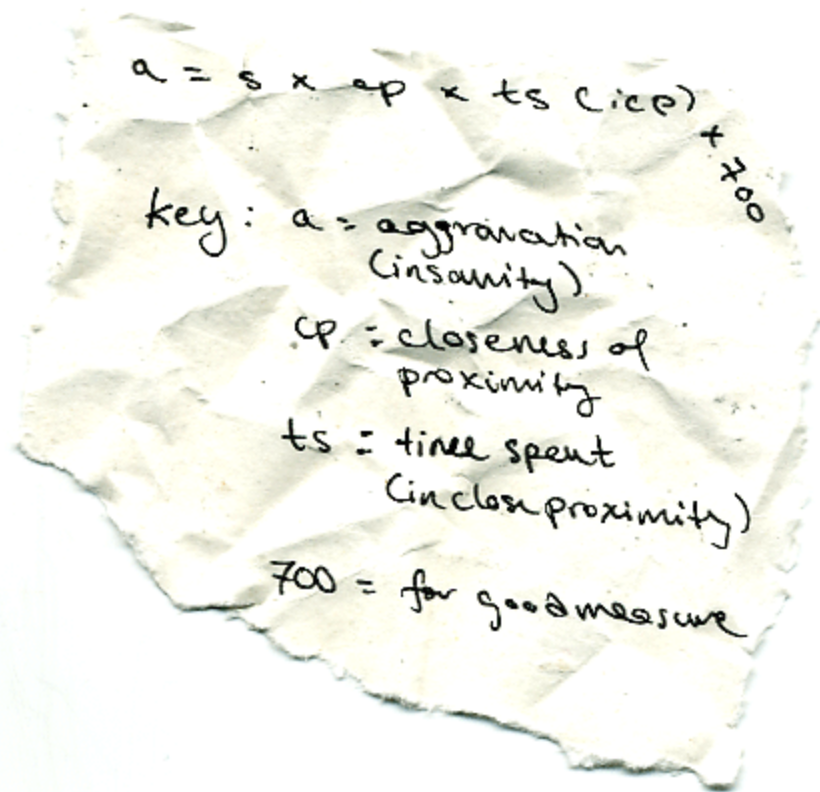 a = s x cp x ts (icp) + 700
key: a = aggravation
(insanity)
cp = closeness of
proximity
ts = time spent
(in close proximity)
700 = for good measure